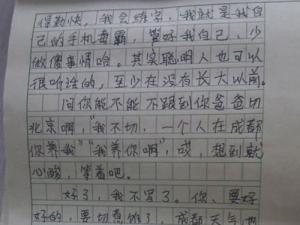 保勤快，我会练字，我就是我自
己的手机毒霸，管好我自己，少
做傻事情哈。其实聪明人也可以
很听话的，至少在没有长大以前。
问你能不能不跟到你爸爸切
北京啊，“我不切，一个人在成都
你养我”“我养你啊”，哎，想到就
心酸，等着吧。
好了，我不写了。你、要好
好的，要切煮饭了，成都天气